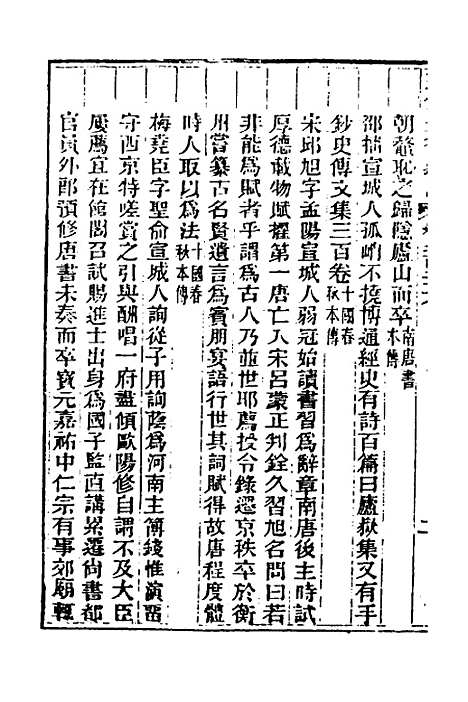 朝蠢恥之歸隱廬山而卒南唐書本傳
邵拙宣城人孤峭不撓博通經史有詩百篇曰廬嶽集又有手
鈔史傳文集三百卷十國春秋本傳
宋邱旭字孟陽宣城人弱冠始讀書習爲辭章南唐後主時試
厚德載物賦擢第一唐亡入宋呂蒙正判銓久習旭名問曰若
非能爲賦者乎謂爲古人乃並世耶薦授令錄遷京秩卒於衡
州嘗纂古名賢遺言爲賓朋宴語行世其詞賦得故唐程度體
時人取以爲法十國春秋本傳
梅堯臣字聖俞宣城人詢從子用詢蔭爲河南主簿錢惟演留
守西京特嗟賞之引與酬唱一府盡傾歐陽修自謂不及大臣
屢薦宜在館閣召試賜進士出身爲國子監直講累遷尚書都
官員外郎預修唐書未奏而卒寶元嘉祐中仁宗有事郊廟輒